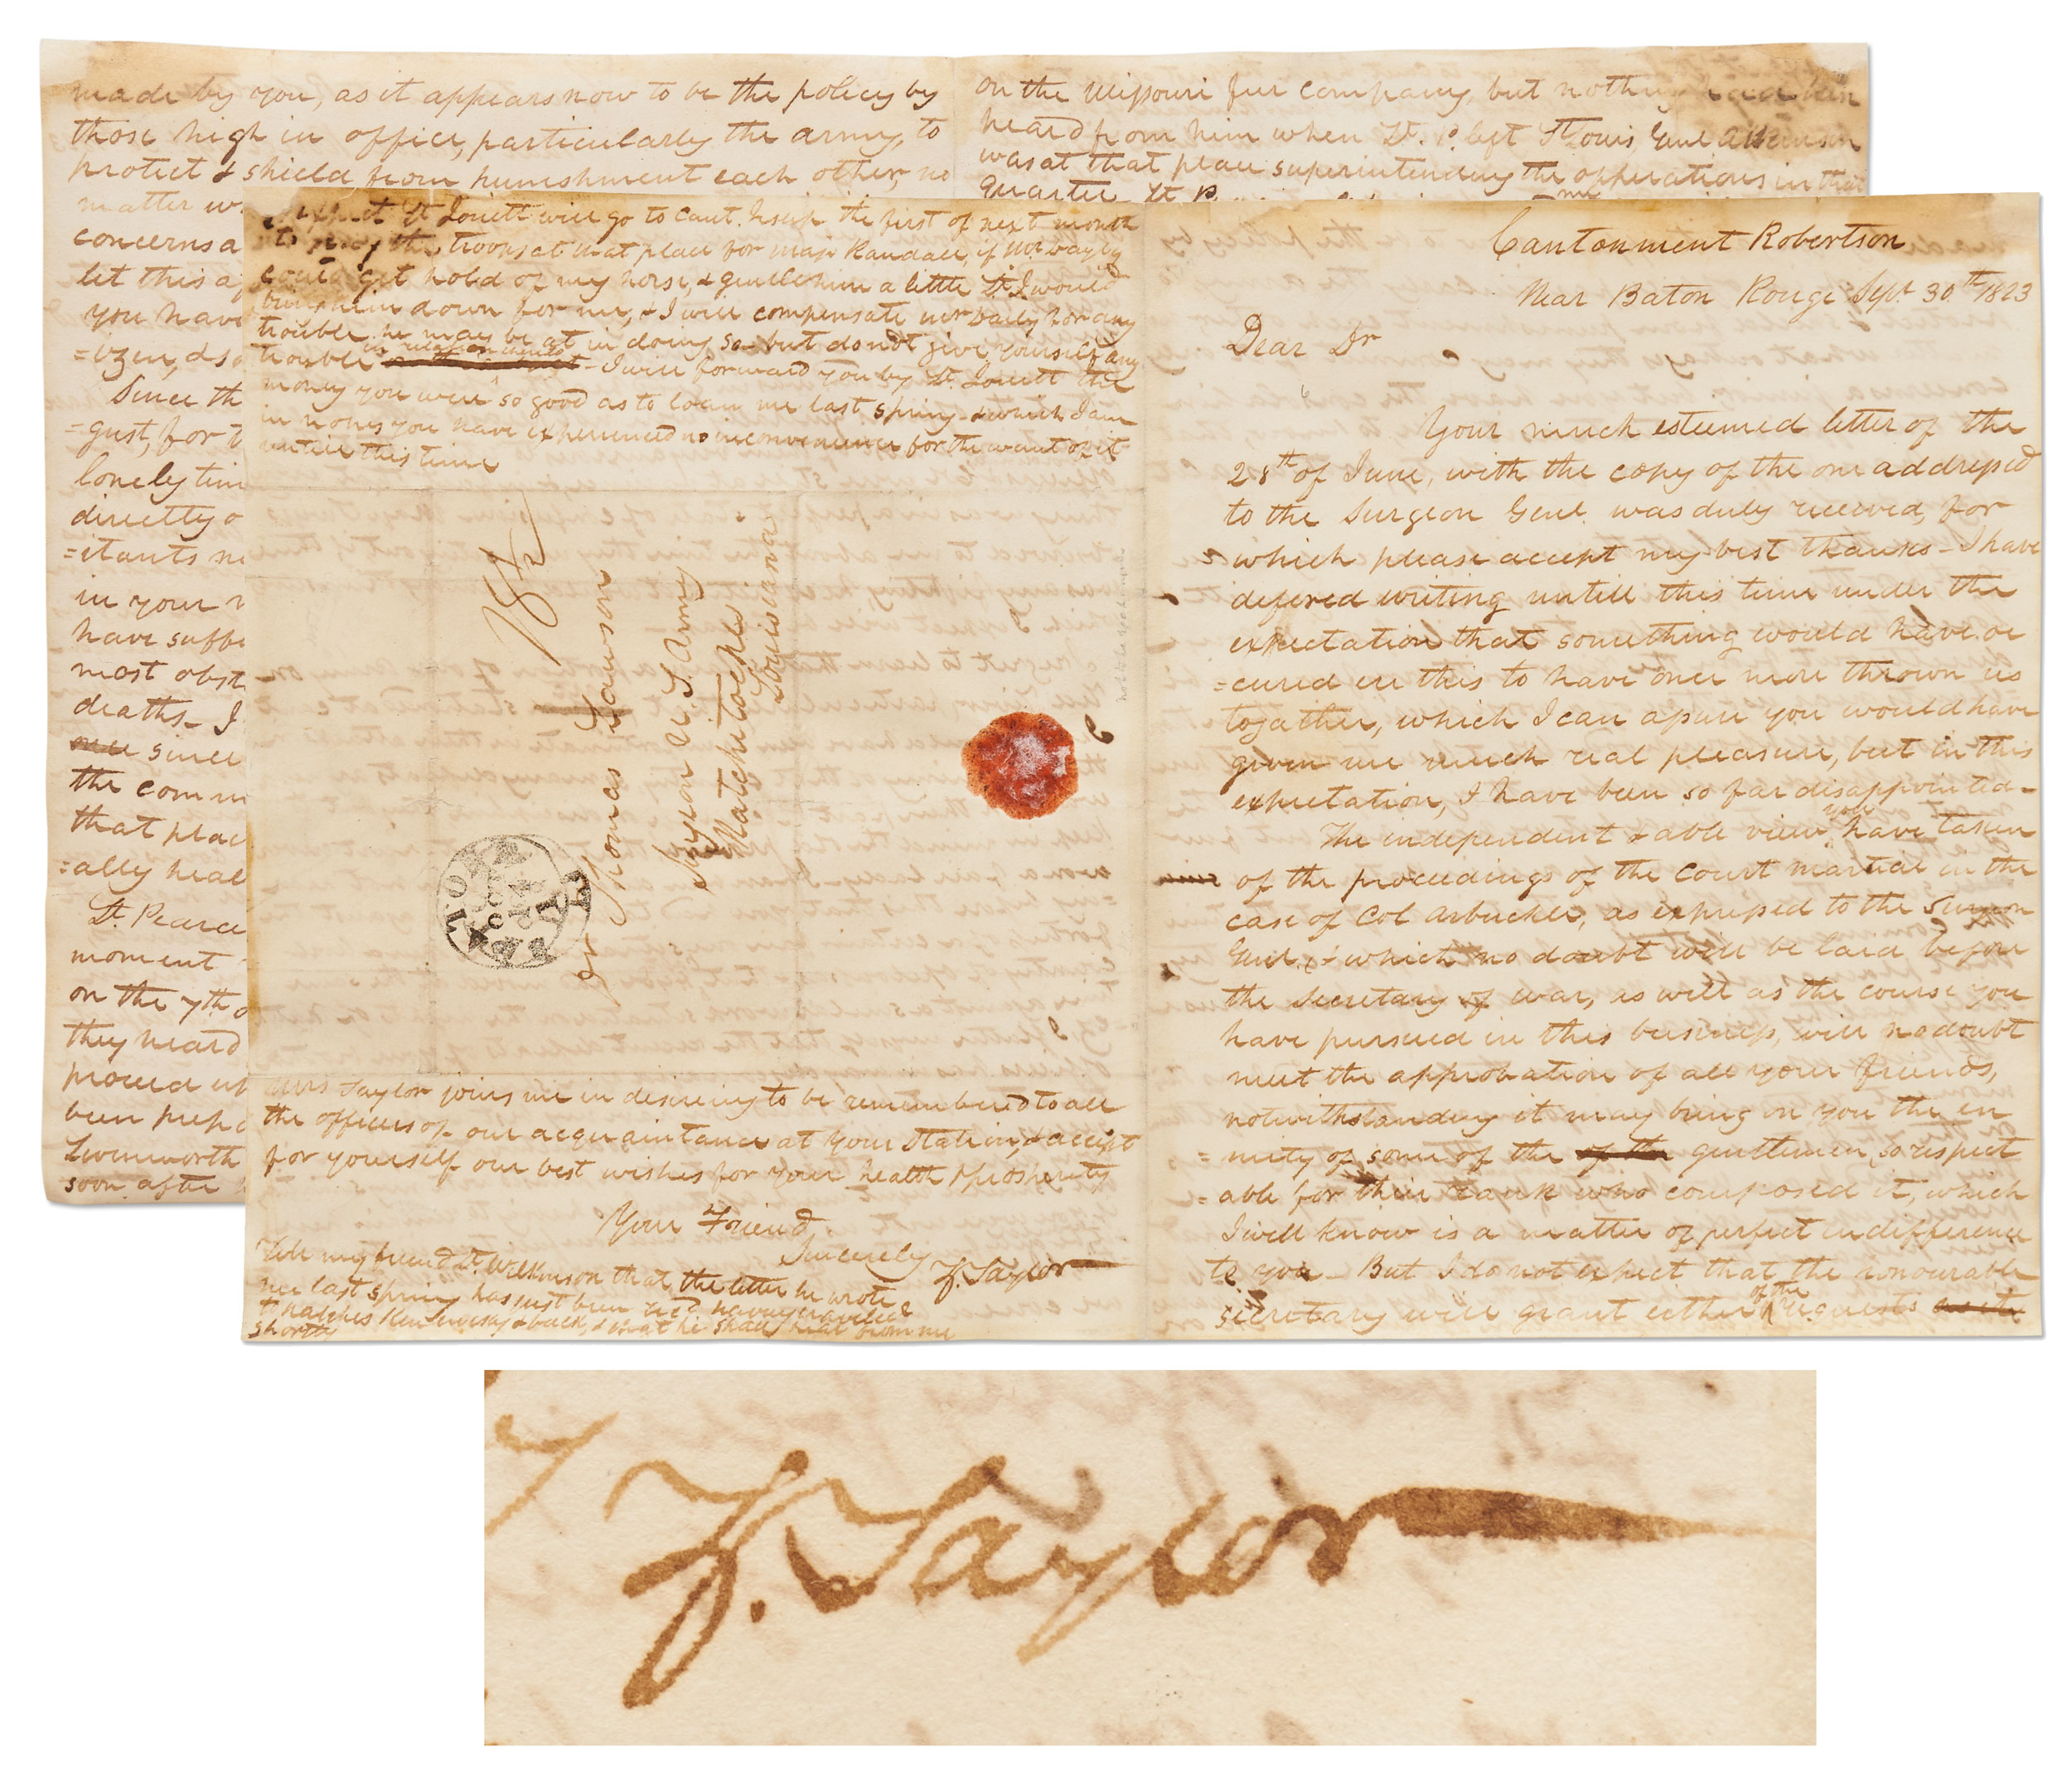 Cantonment Robertson
Near Baton Rouge Sept. 30th 1823
Dear Dr
Your much esteemed letter of the
28th of June, with the copy of the one addressed
to the Surgeon Genl. was duly received, for
which please accept my best thanks - I have
defered writing untill this time under the
expectation that something would have oc
=cured in this to have once more thrown us
together, which I can assure you would have
given me much real pleasure, but in this
expectation, I have been so far disappointed -
The independent & able view you have taken
of the proceedings of the Court martial in the
case of Col Arbuckle, as expressed to the Surgeon
Genl. & which no doubt will be laid before
the Secretary of War, as well as the course you
have pursued in this business, will no doubt
meet the approbation of all your friends,
notwithstanding it may bring on you the en
=mity of some of the of the gentlemen, so respect
=able for their rank who composed it, which
I well know is a matter of perfect indifference
to you - But I do not expect that the honourable
secretary will grant either of the requests
made by you, as it appears now to be the policy by
those high in office, particularly the army, to
protect & shield from punishment each other, no
matter w
concerns a
let this a
you have
=ozen, & so
Since th
=gust, for t
lonely tim
directly o
=itants n
in your
have suffe
most obst
deaths - I
since
the comm
that plac
=ally heal
Lt. Pearce
moment
on the 7th o
they heard
proceed
been prep
Livenworth
soon after
on the Missouri fur company, but nothing had been
heard from him when Lt. P. left St Louis Genl Atkinson
was at that place superintending the opperations in that
quarter Lt P
I expect Lt Jouett will go to Cant. Jesup the first of next month
to pay the troops at that place for Majr Randall, if Mr Bayly
could get hold of my horse, & gentle him a little Lt. J would
bring him down for me, & I will compensate Mr Baily for any
trouble he may be at in doing so - but do not give yourself any
trouble in relation - I will forward you by Lt. Jouett the
money you were so good as to loan me last spring & which I am
in hopes you have experienced no inconvenience for the want of it
untill this time
18½
Dr Thomas Lawson
Surgeon U. S. Army
Natchitoches
Louisiana
Mrs Taylor joins me in desireing to be remembered to all
the officers of our acquaintance at your Station, & accept
for yourself our best wishes for your health & prosperity
Your Friend
Sincerely
Z. Taylor
Tell my friend Lt. Wilkinson that the letter he wrote
me last spring has just been recd having traveled
to Natches & back, & that he shall hear from me
shortly
Z. Taylor